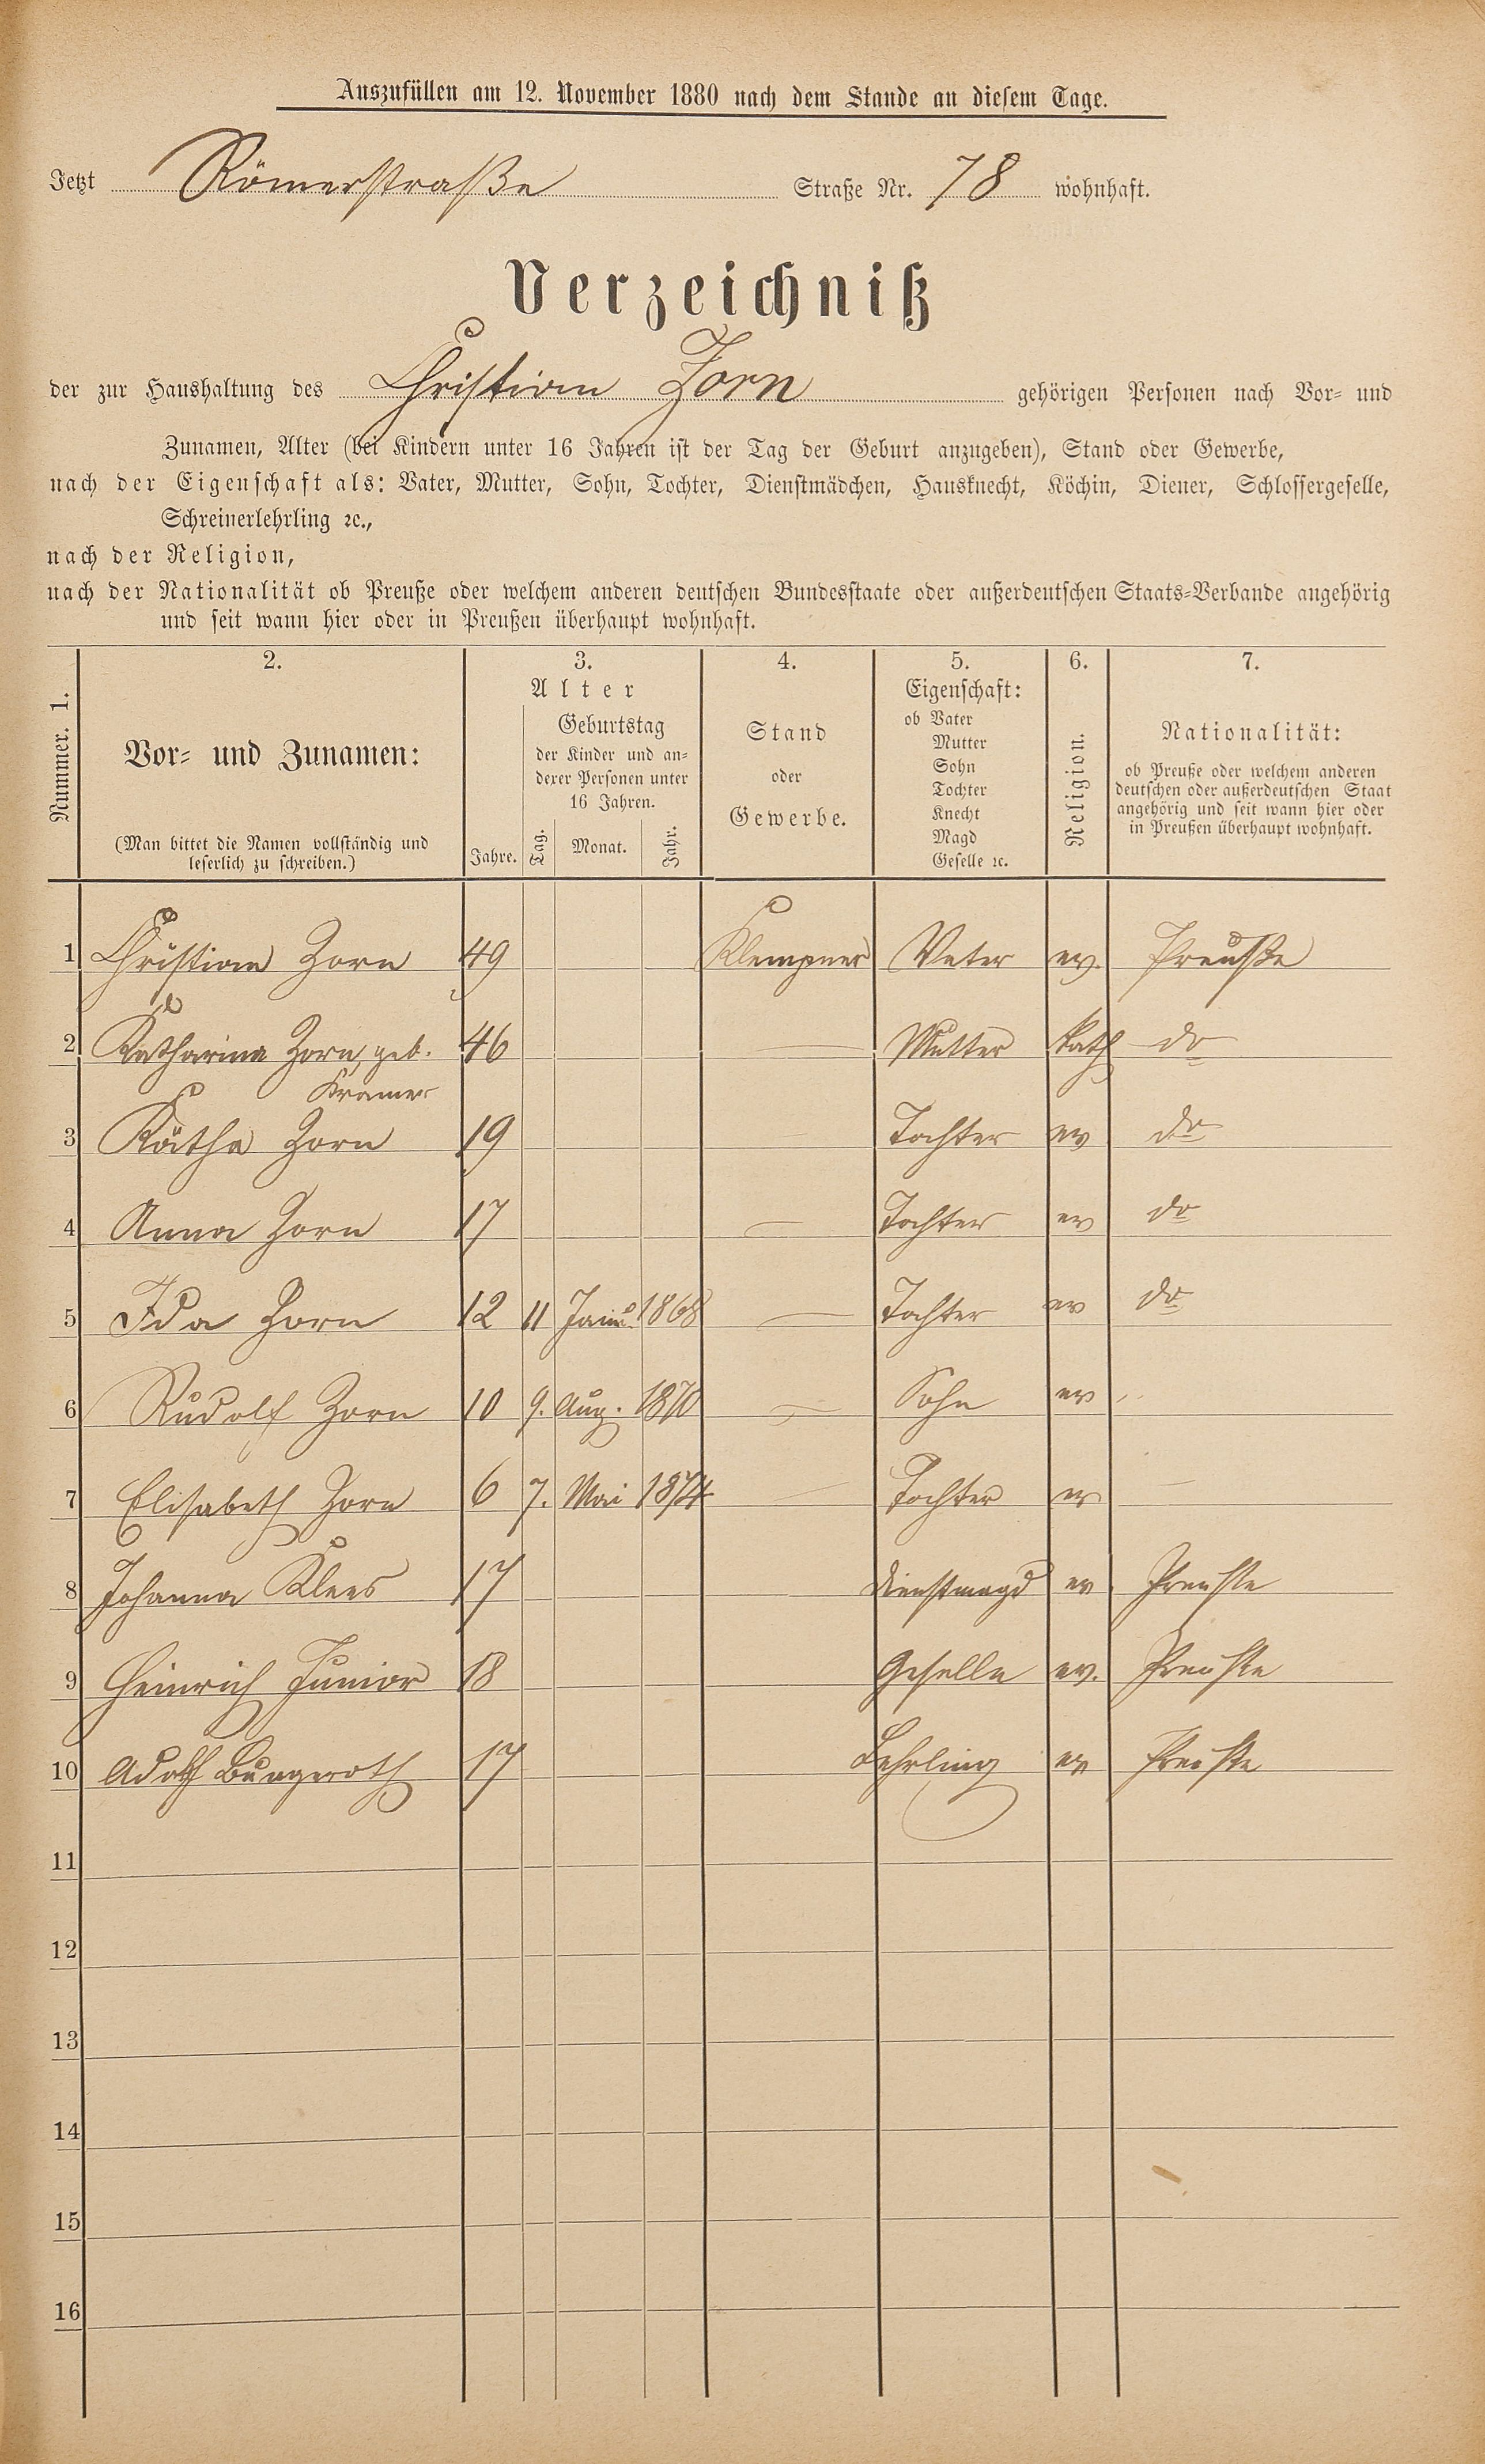 Auszufüllen am 12. November 1880 nach dem Stande an diesem Tage.
Jetzt Römerstraße Straße Nr. 78 wohnhaft.
Verzeichniß
der zur Haushaltung des Christian Zorn gehörigen Personen nach Vor- und
Zunamen, Alter (bei Kindern unter 16 Jahren ist der Tag der Geburt anzugeben), Stand oder Gewerbe,
nach der Eigenschaft als: Vater, Mutter, Sohn, Tochter, Dienstmädchen, Hausknecht, Köchin, Diener, Schlossergeselle,
Schreinerlehrling ꝛc.,
nach der Religion,
nach der Nationalität ob Preuße oder welchem anderen deutschen Bundesstaate oder außerdeutschen Staats-Verbande angehörig
und seit wann hier oder in Preußen überhaupt wohnhaft.
Nummer. 1.
2.
Vor- und Zunamen:
(Man bittet die Namen vollständig und
leserlich zu schreiben.)
3.
Alter
Jahre.
Geburtstag
der Kinder und an-
derer Personen unter
16 Jahren.
Tag. Monat. Jahr.
4.
Stand
oder
Gewerbe.
5.
Eigenschaft:
ob Vater
Mutter
Sohn
Tochter
Knecht
Magd
Geselle ꝛc.
6.
Religion.
7.
Nationalität:
ob Preuße oder welchem anderen
deutschen oder außerdeutschen Staat
angehörig und seit wann hier oder
in Preußen überhaupt wohnhaft.
1 Christian Zorn 49 Klempner Vater ev. Preuße
2 Katharina Zorn, geb. 46 — Mutter kath do
Kramer
3 Käthe Zorn 19 Tochter ev do
4 Anna Zorn 17 — Tochter ev do
5 Ida Zorn 12 11 1868 — Tochter ev do
6 Rudolf Zorn 10 9. Aug. 1870 — Sohn ev
7 Elisabeth Zorn 6 7. Mai 1874 — Tochter ev —
8 Johanna Klees 17 Dienstmagd ev Preuße
9 Heinrich Junior 18 Geselle ev. Preuße
10 Adolf 17 Lehrling ev Preuße
11
12
13
14
15
16